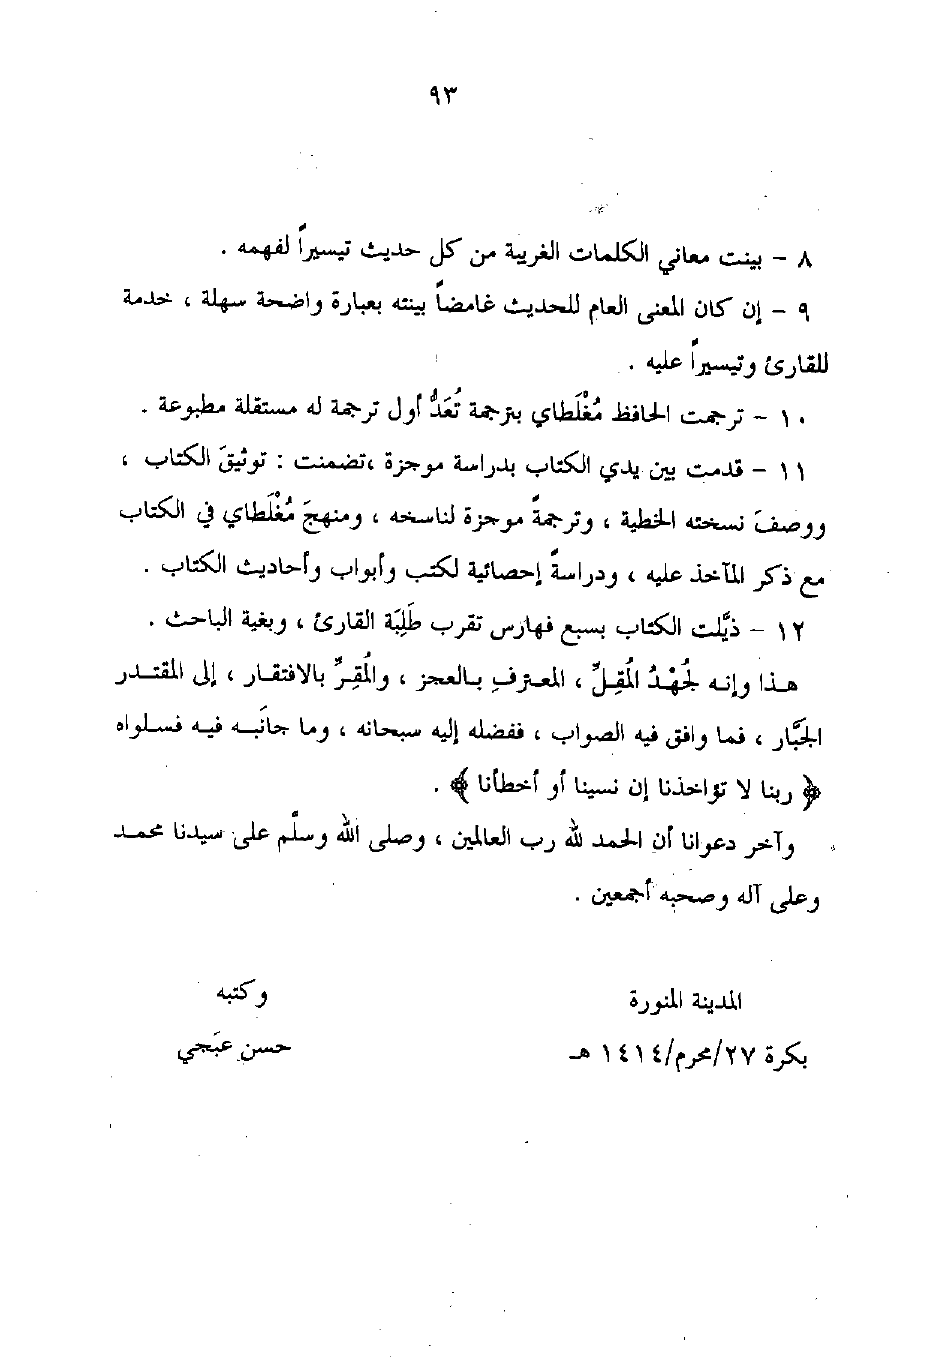 ٩٣
٨ - بينت معاني الكلمات الغريبة من كل حديث تيسيراً لفهمه .
٩ - إن كان المعنى العام للحديث غامضاً بينته بعبارة واضحة سهلة ، خدمة
للقارئ وتيسيراً عليه .
١٠ - ترجمت الحافظ مُغْلَطاي بترجمة تُعَدُّ أول ترجمة له مستقلة مطبوعة .
١١ - قدمت بين يدي الكتاب بدراسة موجزة ،تضمنت : توثيقَ الكتاب ،
ووصفَ نسخته الخطية ، وترجمةً موجزة لناسخه ، ومنهجَ مُغْلَطاي في الكتاب
مع ذكر المآخذ عليه ، ودراسةً إحصائية لكتب وأبواب وأحاديث الكتاب .
١٢ - ذيَّلت الكتاب بسبع فهارس تقرب طَلِبَة القارئ ، وبغية الباحث .
هذا وإنه لجُهْدُ المُقِلِّ ، المعترفِ بالعجز ، والمُقِرِّ بالافتقار ، إلى المقتدر
الجبَّار ، فما وافق فيه الصواب ، ففضله إليه سبحانه ، وما جانَبه فيه فسلواه
﴿ ربنا لا تؤاخذنا إن نسينا أو أخطأنا ﴾ .
وآخر دعوانا أن الحمد لله رب العالمين ، وصلى الله وسلَّم على سيدنا محمد
وعلى آله وصحبه أجمعين .
المدينة المنورة
وكتبه
بكرة ٢٧/محرم/١٤١٤ هـ
حسن عبَجي